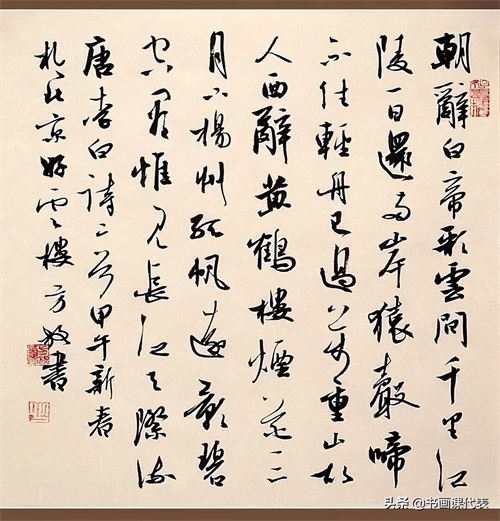 朝辭白帝彩雲間千里江
陵一日還兩岸猿聲啼
不住輕舟已過万重山故
人西辭黃鶴樓煙花三
月下楊州孤帆遠影碧
空盡惟見長江天際流
唐李白詩二首甲午新春
京好雲樓方書
头条 @书画课代表